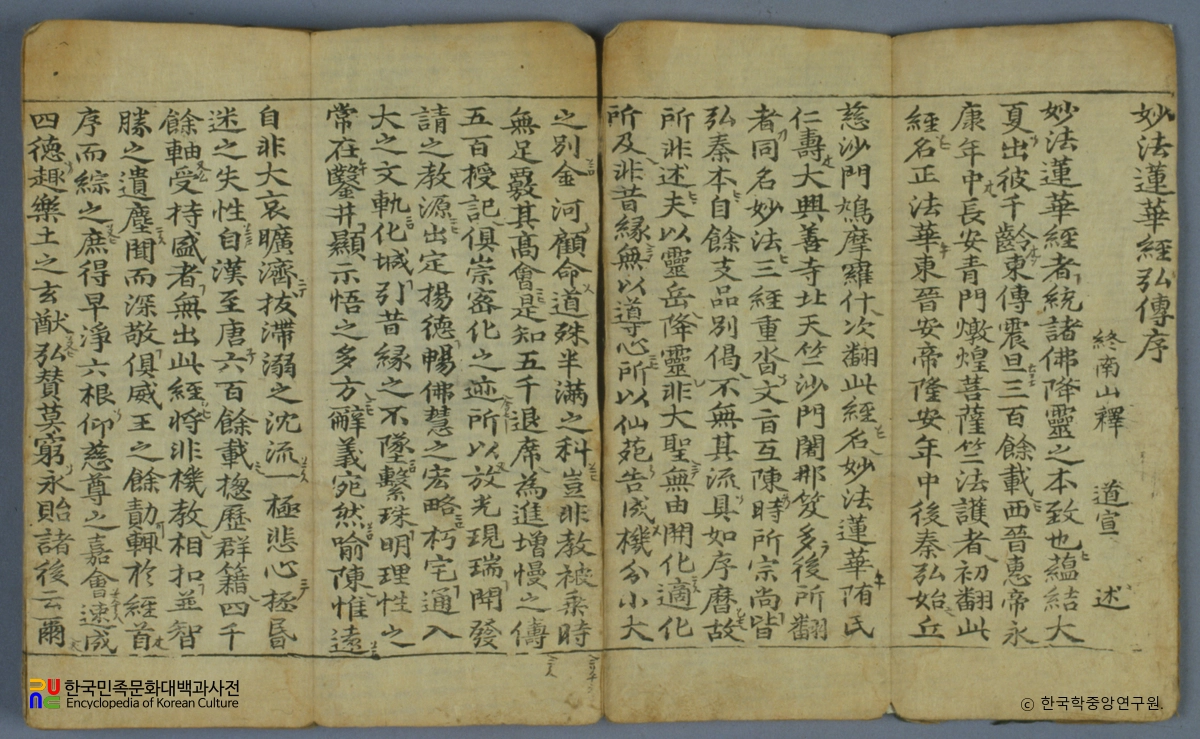 妙法蓮華經弘傳序
終南山釋 道宣 述
妙法蓮華經者統諸佛降靈之本致也蘊結大
夏出彼千齡東傳震旦三百餘載西晉惠帝永
康年中長安青門燉煌菩薩竺法護者初翻此
經名正法華東晉安帝隆安年中後秦弘始丘
慈沙門鳩摩羅什次翻此經名妙法蓮華隋氏
仁壽大興善寺北天竺沙門闍那笈多後所翻
者同名妙法三經重沓文旨互陳時所宗尚皆
弘秦本自餘支品別偈不無其流具如序曆故
所非述夫以靈岳降靈非大聖無由開化適化
所及非昔緣無以導心所以仙苑告成機分小大
之別金河顧命道殊半滿之科豈非教被乘時
無足覈其髙會是知五千退席為進增慢之儔
五百授記俱崇密化之迹所以放光現瑞開發
請之教源出定揚德暢佛慧之宏略朽宅通入
大之文軌化城引昔緣之不墜繫珠明理性之
常在鑿井顯示悟之多方辭義宛然喻陳惟遠
自非大哀曠濟拔滯溺之沈流一極悲心拯昏
迷之失性自漢至唐六百餘載揔歷群籍四千
餘軸受持盛者無出此經將非機教相扣並智
勝之遺塵聞而深敬俱威王之餘勣輒於經首
序而綜之庶得早淨六根仰慈尊之嘉會速成
四德趣樂土之玄猷弘贊莫窮永貽諸後云爾
한국민족문화대백과사전
Encyclopedia of Korean Culture
ⓒ 한국학중앙연구원.